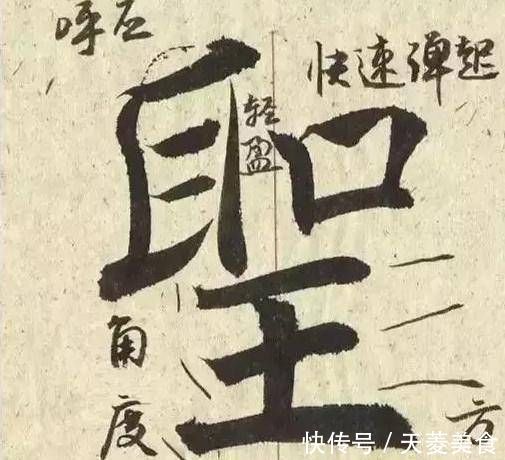 呼应
快速弹起
聖
轻盈
角度
方
快传号 / 天菱美食